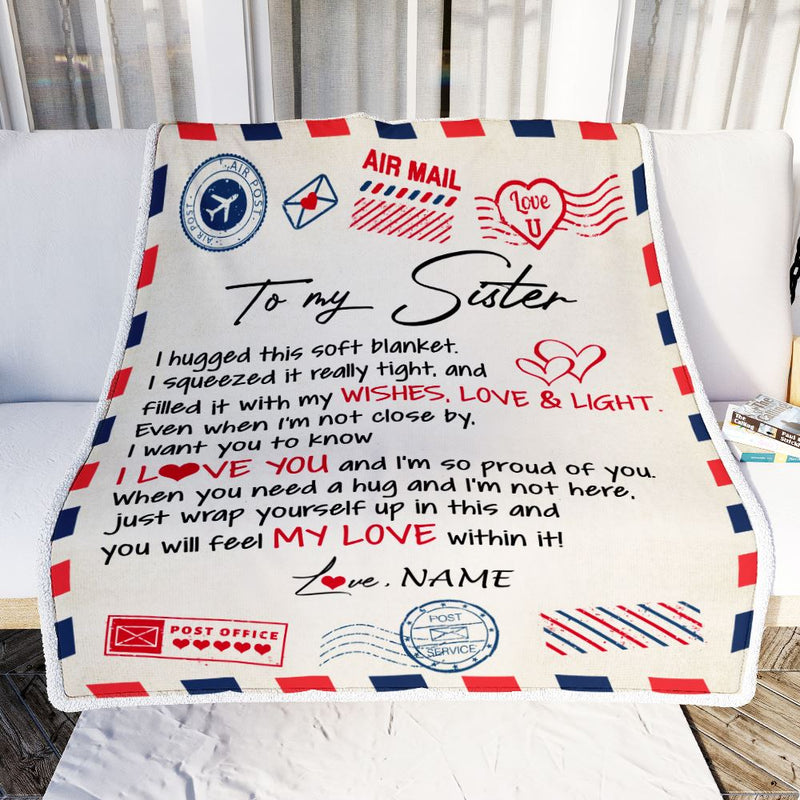 AIR POST
AIR POST
AIR MAIL
Love
U
To my Sister
I hugged this soft blanket.
I squeezed it really tight, and
filled it with my WISHES, LOVE & LIGHT.
Even when I'm not close by,
I want you to know
I L❤VE YOU and I'm so proud of you.
When you need a hug and I'm not here,
just wrap yourself up in this and
you will feel MY LOVE within it!
L❤ve, NAME
POST OFFICE
POST
SERVICE
The